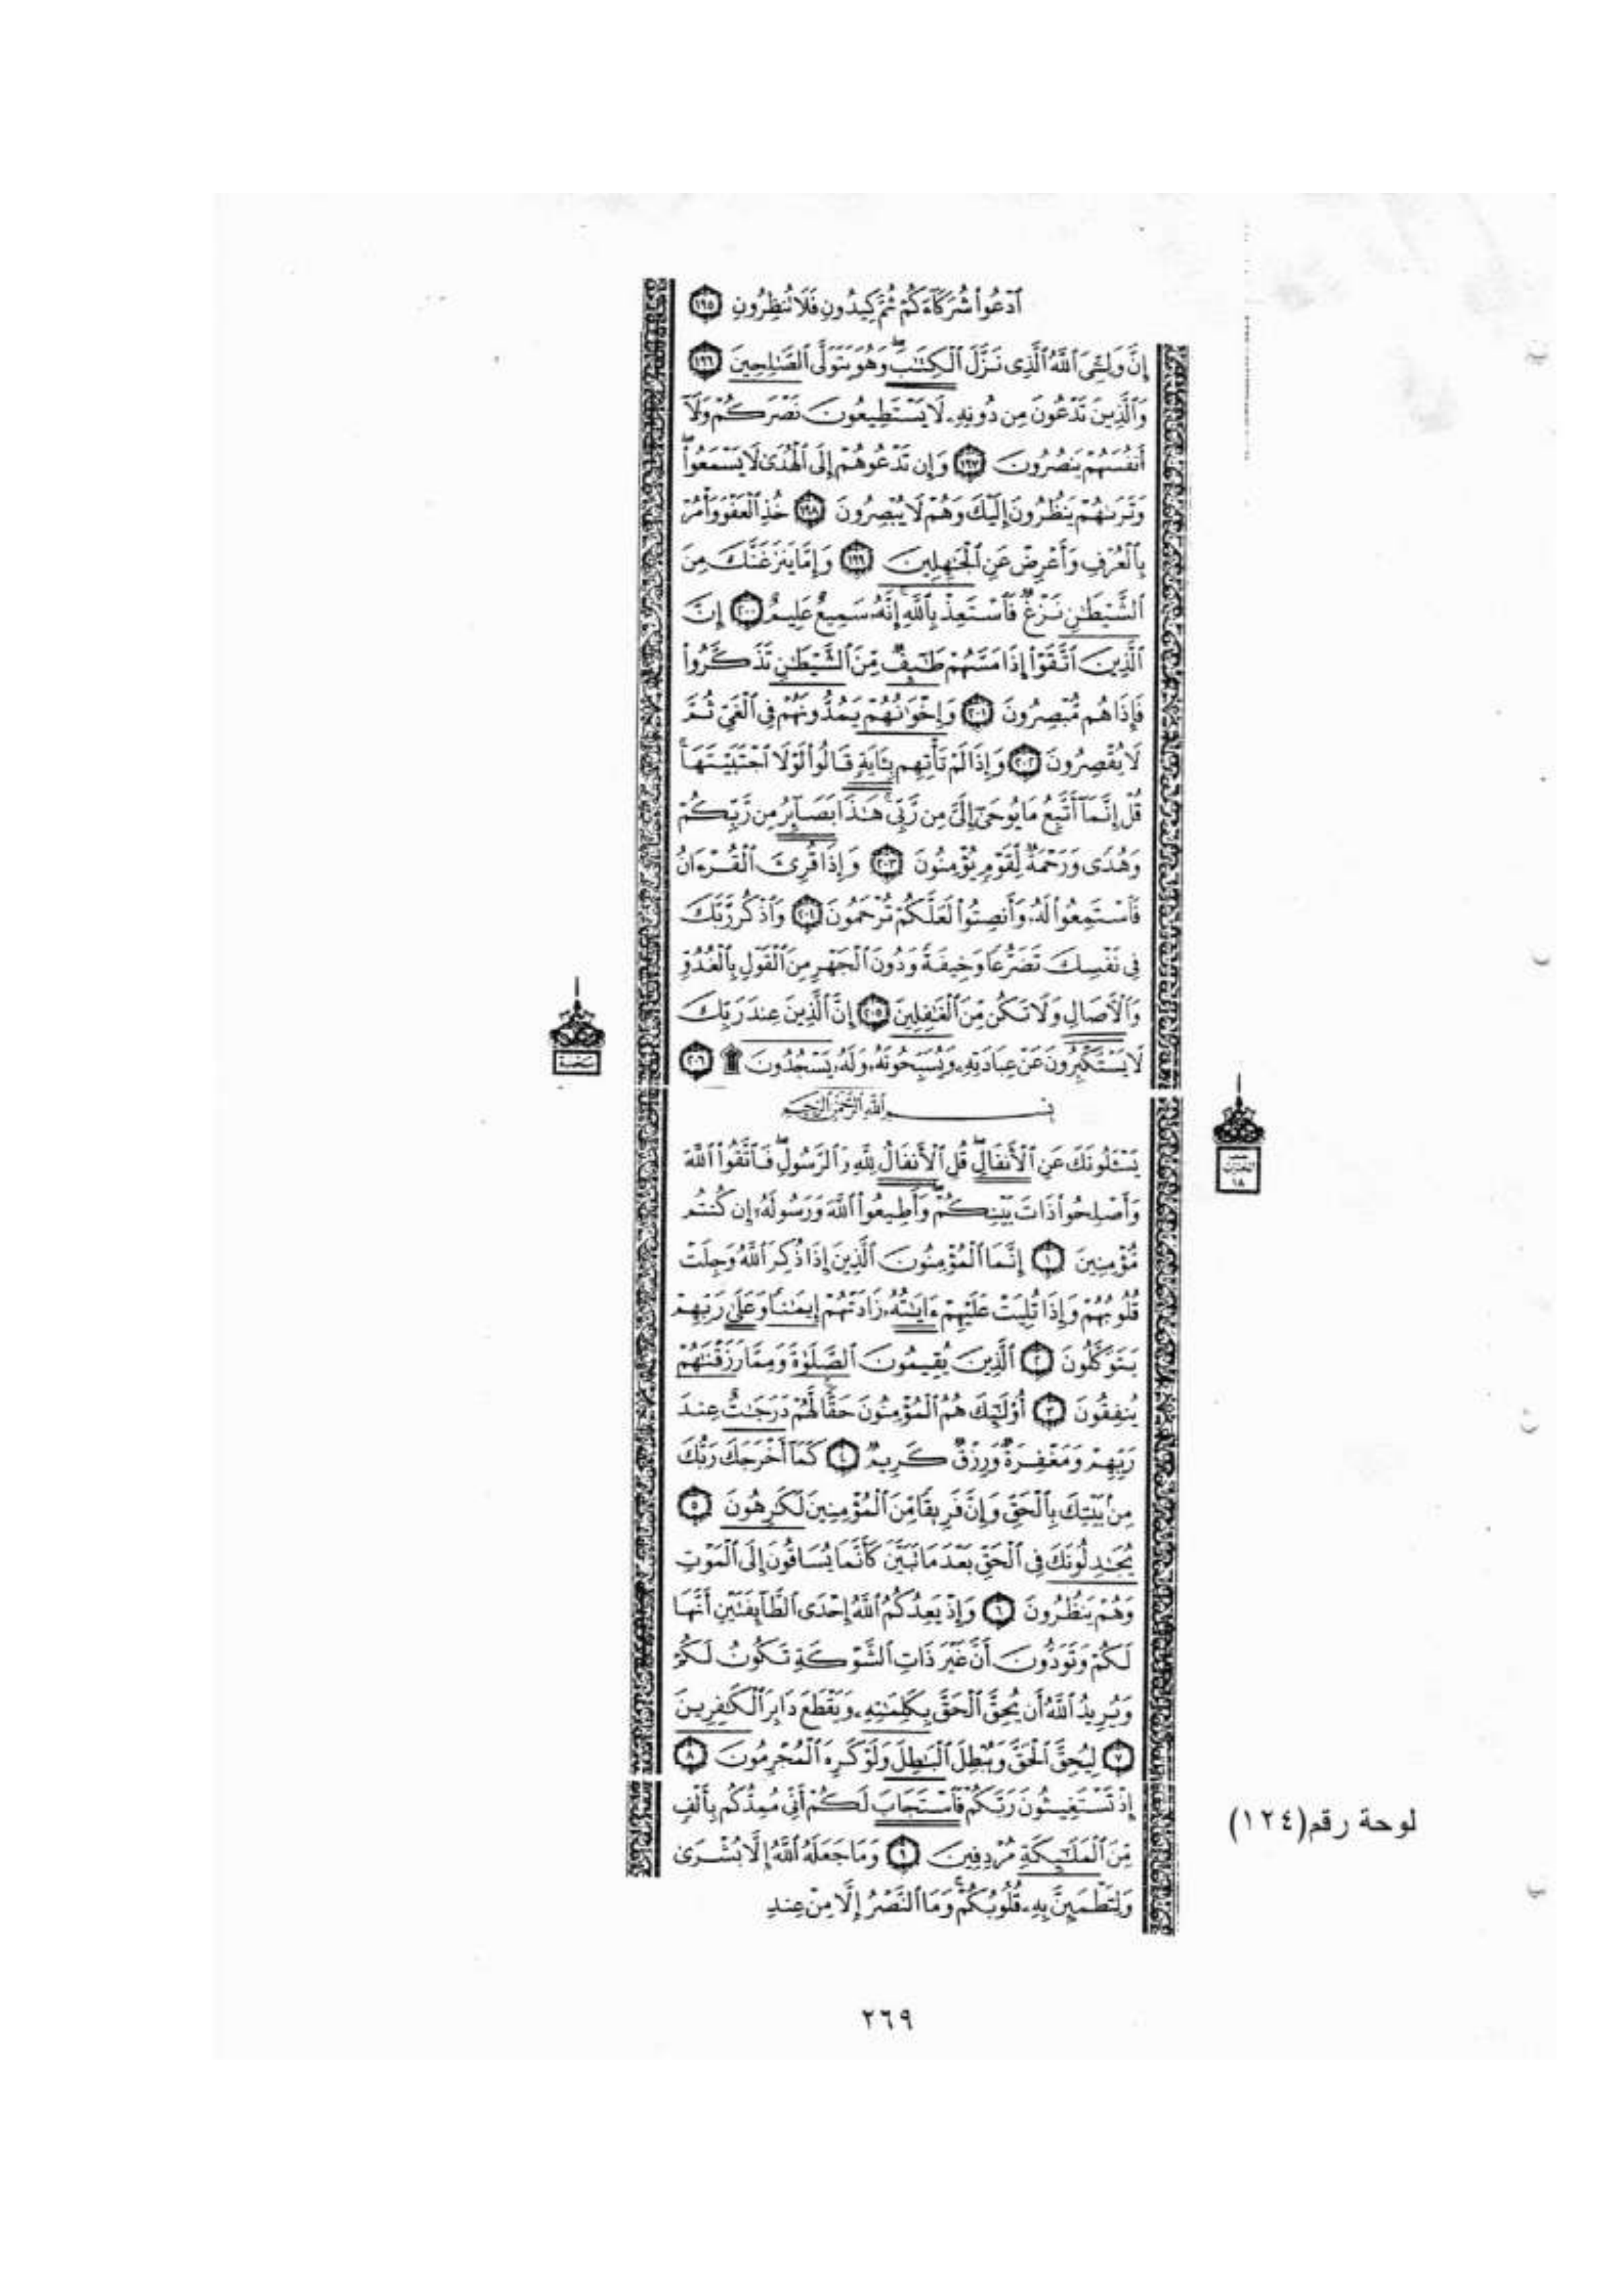 ٱدْعُوا۟ شُرَكَآءَكُمْ ثُمَّ كِيدُونِ فَلَا تُنظِرُونِ ١٩٥
إِنَّ وَلِـِّۧىَ ٱللَّهُ ٱلَّذِى نَزَّلَ ٱلْكِتَـٰبَ ۖ وَهُوَ يَتَوَلَّى ٱلصَّـٰلِحِينَ ١٩٦
وَٱلَّذِينَ تَدْعُونَ مِن دُونِهِۦ لَا يَسْتَطِيعُونَ نَصْرَكُمْ وَلَآ
أَنفُسَهُمْ يَنصُرُونَ ١٩٧ وَإِن تَدْعُوهُمْ إِلَى ٱلْهُدَىٰ لَا يَسْمَعُوا۟ ۖ
وَتَرَىٰهُمْ يَنظُرُونَ إِلَيْكَ وَهُمْ لَا يُبْصِرُونَ ١٩٨ خُذِ ٱلْعَفْوَ وَأْمُرْ
بِٱلْعُرْفِ وَأَعْرِضْ عَنِ ٱلْجَـٰهِلِينَ ١٩٩ وَإِمَّا يَنزَغَنَّكَ مِنَ
ٱلشَّيْطَـٰنِ نَزْغٌ فَٱسْتَعِذْ بِٱللَّهِ ۚ إِنَّهُۥ سَمِيعٌ عَلِيمٌ ٢٠٠ إِنَّ
ٱلَّذِينَ ٱتَّقَوْا۟ إِذَا مَسَّهُمْ طَـٰٓئِفٌ مِّنَ ٱلشَّيْطَـٰنِ تَذَكَّرُوا۟
فَإِذَا هُم مُّبْصِرُونَ ٢٠١ وَإِخْوَٰنُهُمْ يَمُدُّونَهُمْ فِى ٱلْغَىِّ ثُمَّ
لَا يُقْصِرُونَ ٢٠٢ وَإِذَا لَمْ تَأْتِهِم بِـَٔايَةٍ قَالُوا۟ لَوْلَا ٱجْتَبَيْتَهَا ۚ
قُلْ إِنَّمَآ أَتَّبِعُ مَا يُوحَىٰٓ إِلَىَّ مِن رَّبِّى ۚ هَـٰذَا بَصَآئِرُ مِن رَّبِّكُمْ
وَهُدًى وَرَحْمَةٌ لِّقَوْمٍ يُؤْمِنُونَ ٢٠٣ وَإِذَا قُرِئَ ٱلْقُرْءَانُ
فَٱسْتَمِعُوا۟ لَهُۥ وَأَنصِتُوا۟ لَعَلَّكُمْ تُرْحَمُونَ ٢٠٤ وَٱذْكُر رَّبَّكَ
فِى نَفْسِكَ تَضَرُّعًا وَخِيفَةً وَدُونَ ٱلْجَهْرِ مِنَ ٱلْقَوْلِ بِٱلْغُدُوِّ
وَٱلْـَٔاصَالِ وَلَا تَكُن مِّنَ ٱلْغَـٰفِلِينَ ٢٠٥ إِنَّ ٱلَّذِينَ عِندَ رَبِّكَ
لَا يَسْتَكْبِرُونَ عَنْ عِبَادَتِهِۦ وَيُسَبِّحُونَهُۥ وَلَهُۥ يَسْجُدُونَ ۩ ٢٠٦
سجدة
بِسْمِ ٱللَّهِ ٱلرَّحْمَـٰنِ ٱلرَّحِيمِ
يَسْـَٔلُونَكَ عَنِ ٱلْأَنفَالِ ۖ قُلِ ٱلْأَنفَالُ لِلَّهِ وَٱلرَّسُولِ ۖ فَٱتَّقُوا۟ ٱللَّهَ
وَأَصْلِحُوا۟ ذَاتَ بَيْنِكُمْ ۖ وَأَطِيعُوا۟ ٱللَّهَ وَرَسُولَهُۥٓ إِن كُنتُم
مُّؤْمِنِينَ ١ إِنَّمَا ٱلْمُؤْمِنُونَ ٱلَّذِينَ إِذَا ذُكِرَ ٱللَّهُ وَجِلَتْ
قُلُوبُهُمْ وَإِذَا تُلِيَتْ عَلَيْهِمْ ءَايَـٰتُهُۥ زَادَتْهُمْ إِيمَـٰنًا وَعَلَىٰ رَبِّهِمْ
يَتَوَكَّلُونَ ٢ ٱلَّذِينَ يُقِيمُونَ ٱلصَّلَوٰةَ وَمِمَّا رَزَقْنَـٰهُمْ
يُنفِقُونَ ٣ أُو۟لَـٰٓئِكَ هُمُ ٱلْمُؤْمِنُونَ حَقًّا ۚ لَّهُمْ دَرَجَـٰتٌ عِندَ
رَبِّهِمْ وَمَغْفِرَةٌ وَرِزْقٌ كَرِيمٌ ٤ كَمَآ أَخْرَجَكَ رَبُّكَ
مِنۢ بَيْتِكَ بِٱلْحَقِّ وَإِنَّ فَرِيقًا مِّنَ ٱلْمُؤْمِنِينَ لَكَـٰرِهُونَ ٥
يُجَـٰدِلُونَكَ فِى ٱلْحَقِّ بَعْدَ مَا تَبَيَّنَ كَأَنَّمَا يُسَاقُونَ إِلَى ٱلْمَوْتِ
وَهُمْ يَنظُرُونَ ٦ وَإِذْ يَعِدُكُمُ ٱللَّهُ إِحْدَى ٱلطَّآئِفَتَيْنِ أَنَّهَا
لَكُمْ وَتَوَدُّونَ أَنَّ غَيْرَ ذَاتِ ٱلشَّوْكَةِ تَكُونُ لَكُمْ
وَيُرِيدُ ٱللَّهُ أَن يُحِقَّ ٱلْحَقَّ بِكَلِمَـٰتِهِۦ وَيَقْطَعَ دَابِرَ ٱلْكَـٰفِرِينَ
٧ لِيُحِقَّ ٱلْحَقَّ وَيُبْطِلَ ٱلْبَـٰطِلَ وَلَوْ كَرِهَ ٱلْمُجْرِمُونَ ٨
إِذْ تَسْتَغِيثُونَ رَبَّكُمْ فَٱسْتَجَابَ لَكُمْ أَنِّى مُمِدُّكُم بِأَلْفٍ
مِّنَ ٱلْمَلَـٰٓئِكَةِ مُرْدِفِينَ ٩ وَمَا جَعَلَهُ ٱللَّهُ إِلَّا بُشْرَىٰ
وَلِتَطْمَئِنَّ بِهِۦ قُلُوبُكُمْ ۚ وَمَا ٱلنَّصْرُ إِلَّا مِنْ عِندِ
لوحة رقم(١٢٤)
٢٦٩